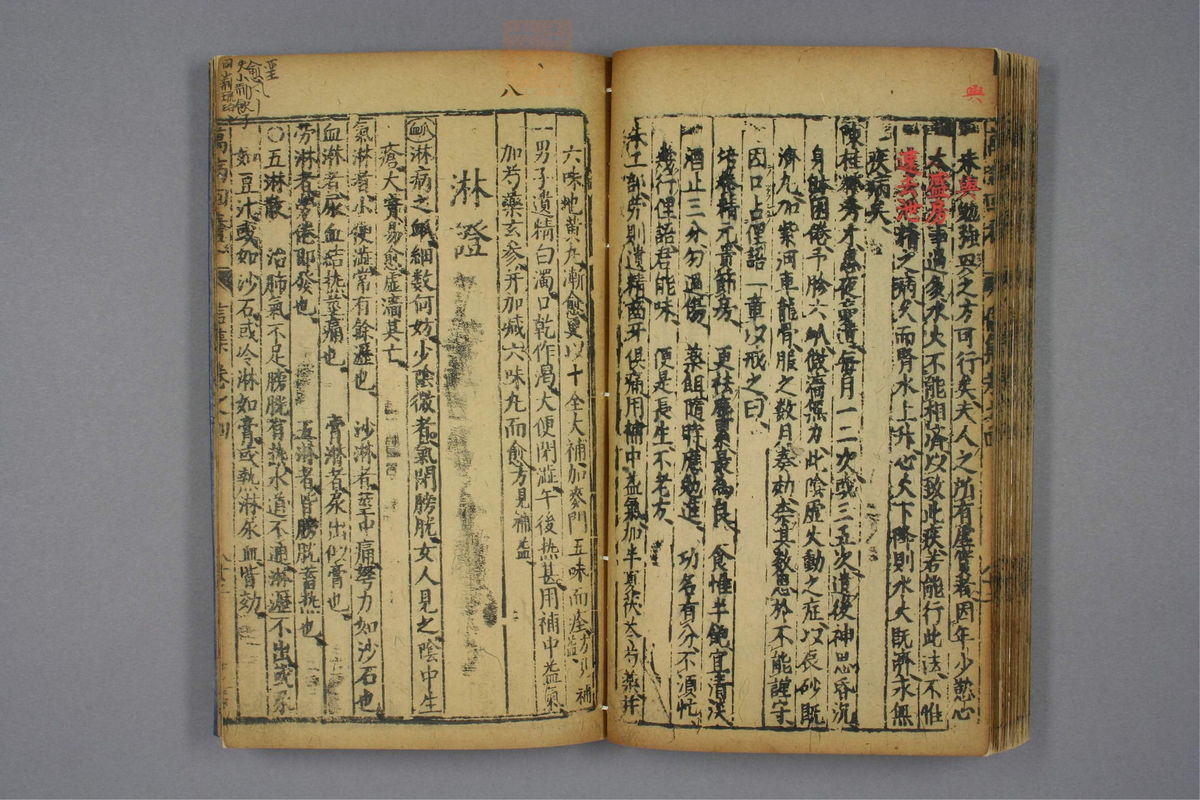 興
未與勉強四之方可行矣夫人之所有虛實者因年少慾心
太盛房事過多水火不能相濟以致此疾若能行此法不惟
遺去泄精之病久而腎水上升心火下降則水火既濟永無
疾病矣
陳桂林秀才患夜夢遺每月一二次或三五次遺後神思昏沉
身體困倦予胗六脉微濇無力此陰虛火動之症以辰砂既
濟丸加紫河車龍骨服之數月奏効柰其數患於不能謹守
因口占俚語一章以戒之曰
培養精元貴節房 更祛塵累最為良 食惟半飽宜清淡
酒止三分勿過傷 藥餌隨時應勉進 功名有分不須忙
幾行俚語君能味 便是長生不老方
朱工部勞則遺精齒牙俱痛用補中益氣加半夏茯苓芍藥幷
八
六味地黃丸漸愈更以十全大補加麥門五味而痊方見補
一男子遺精白濁口乾作渴大便閉澁午後熱甚用補中益氣
加芍藥玄參幷加減六味丸而愈方見補益
淋證
脉淋病之脉細數何妨少陰微者氣閉膀胱女人見之陰中生
瘡大實易愈虛濇其亡
氣淋者小便澁常有餘瀝也 沙淋者莖中痛努力如沙石也
血淋者尿血結熱莖痛也 膏淋者尿出似膏也
勞淋者勞倦即發也 五淋者皆膀胱蓄熱也
〇五淋散 治肺氣不足膀胱有熱水道不通淋瀝不出或尿
如豆汁或如沙石或冷淋如膏或熱淋尿血皆効
萬病回春 卷之四